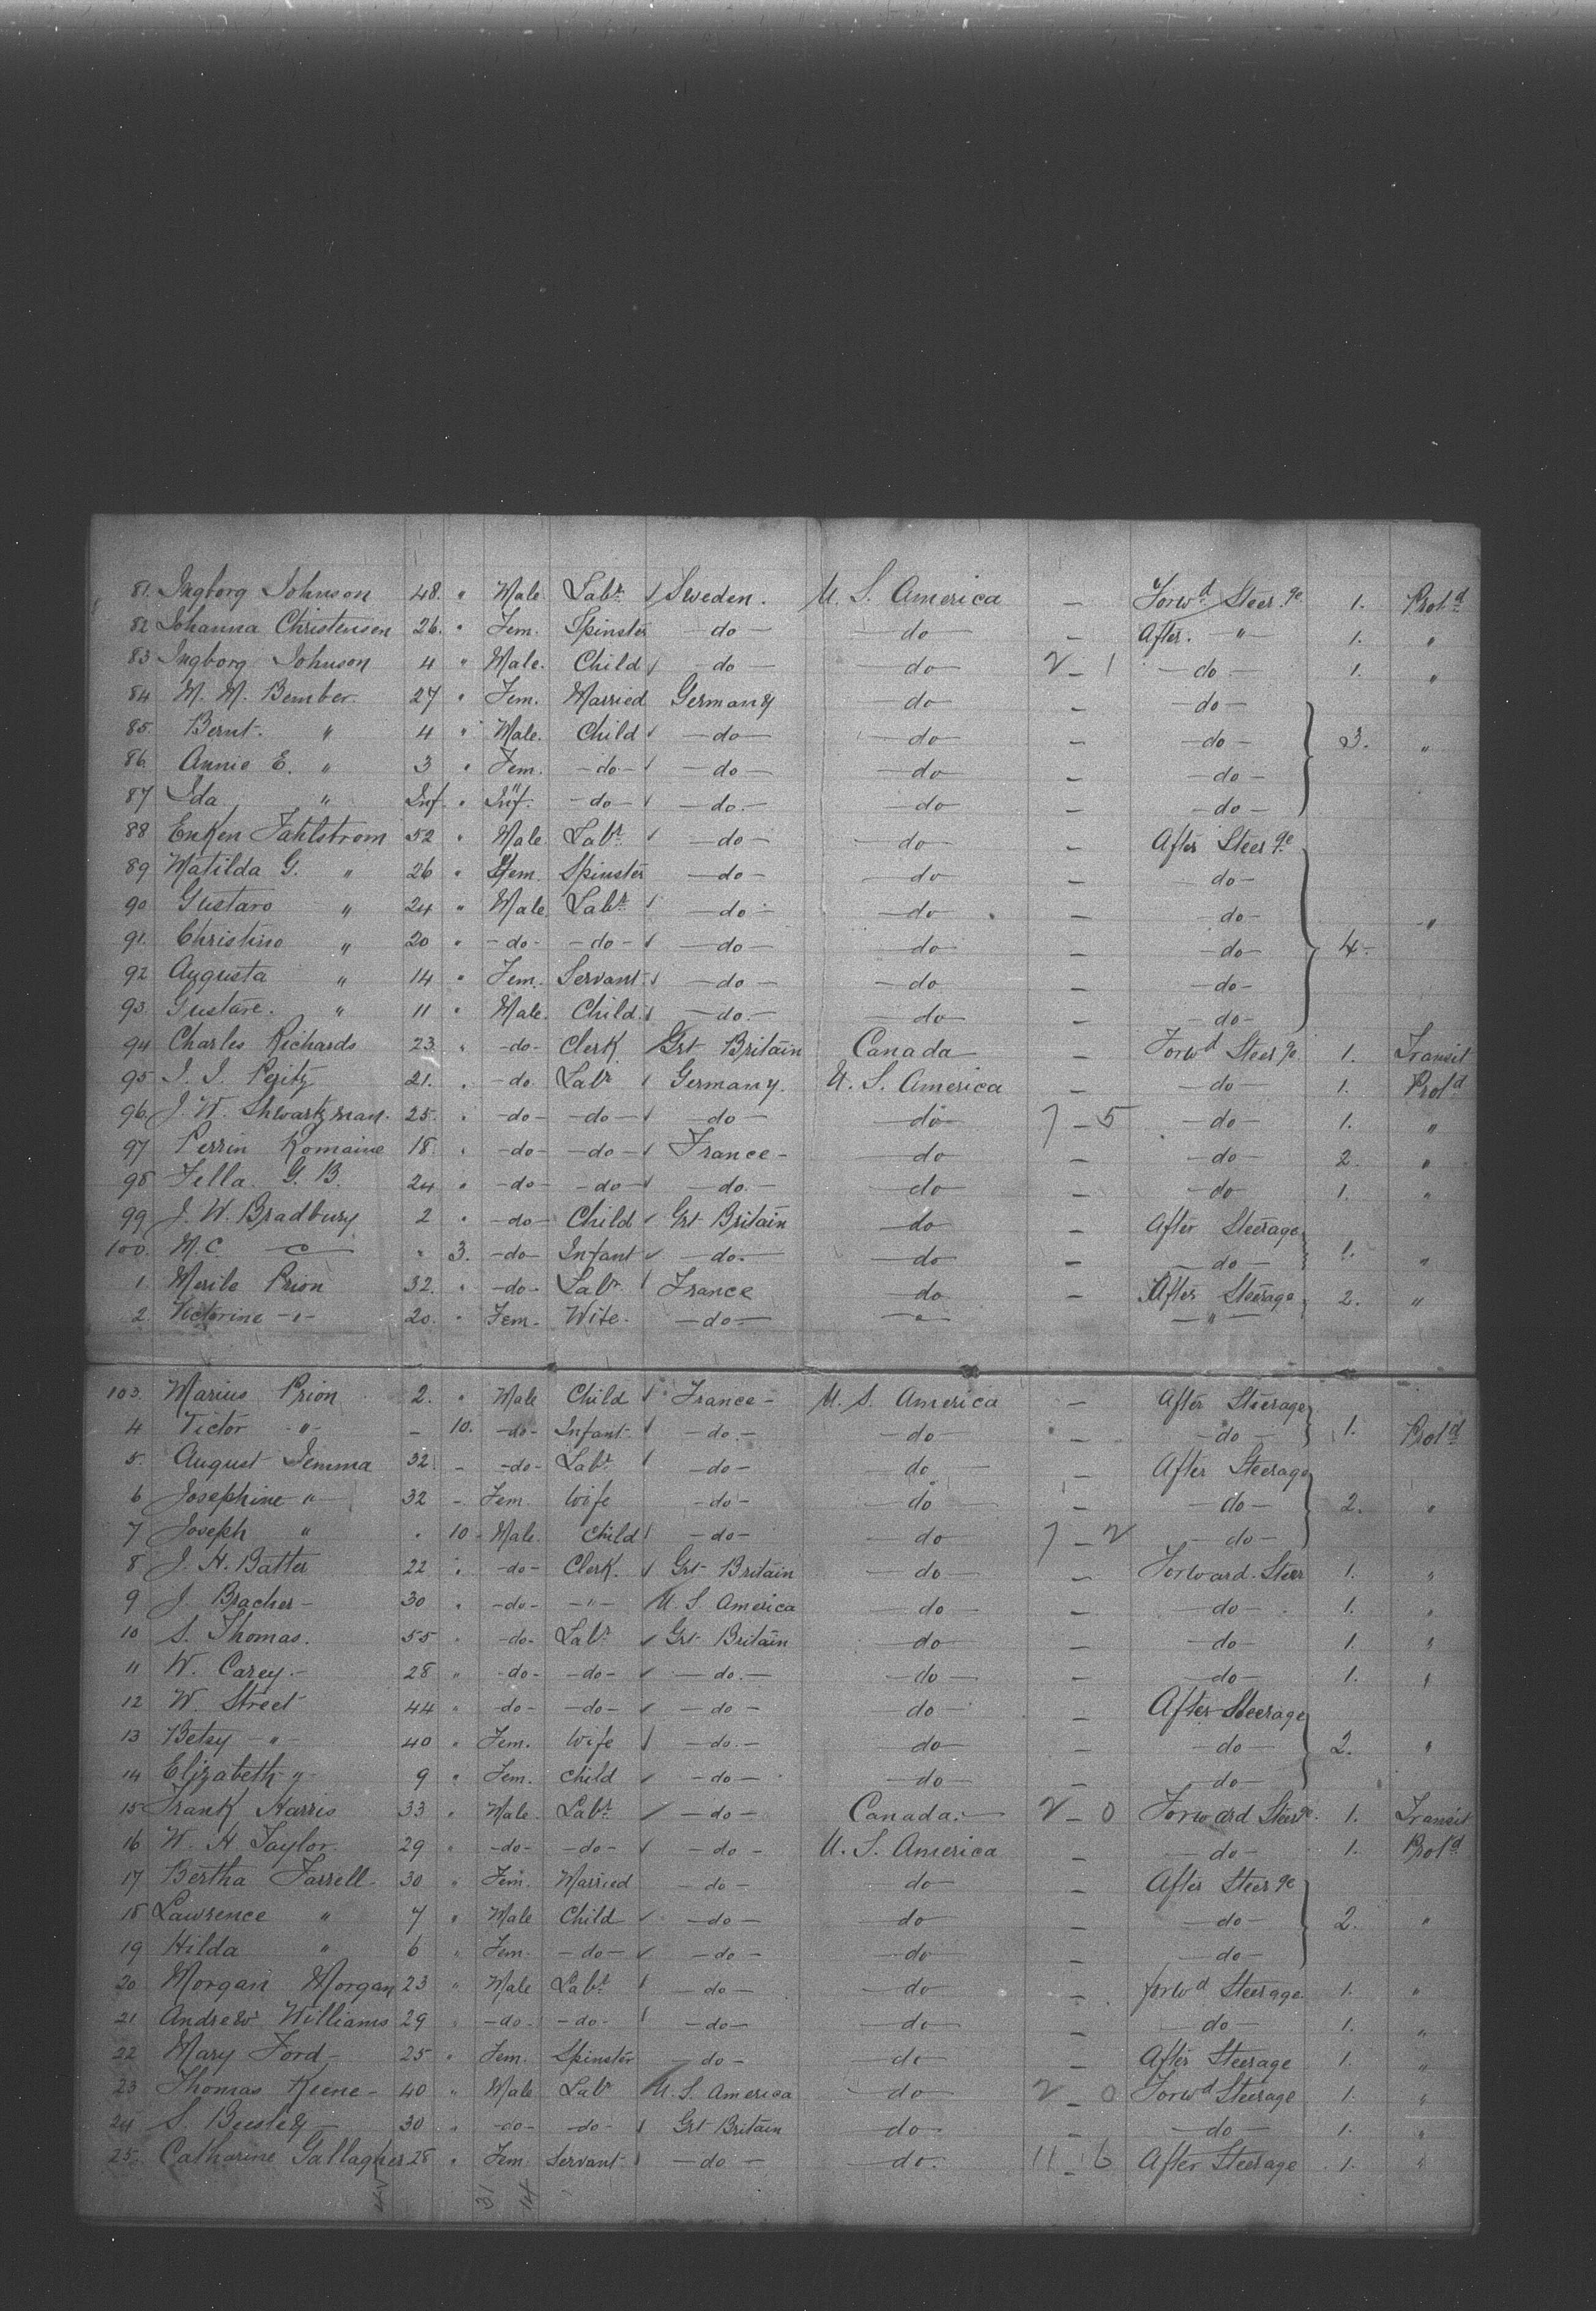 81. Ingborg Johnson 48. " Male Labr. Sweden. U. S. America — Forwd. Steer.ge 1. Protd
82 Johanna Christensen 26. " Fem. Spinster — do — — do — — After. — " — 1. "
83 Ingborg Johnson 4 " Male. Child — do — — do — 2 — 1 — do — 1. "
84 M. M. Bember 27 " Fem. Married Germany — do — — — do —
85. Bernt. " 4 " Male. Child — do — — do — — — do — 3. "
86. Annie E. " 3 " Fem. — do — — do — — do — — — do —
87 Ida " Inf. " Inf. — do — — do. — — do — — — do —
88 Enken Fahlstrom 52 " Male. Labr. — do — — do — — After Steerge
89 Matilda G. " 26 " Fem. Spinster — do — — do — — do —
90 Gustavo " 24 " Male Labr. — do — — do — — — do — "
91. Christino " 20 " — do — — do — — do — — do — — — do — 4 —
92 Augusta " 14 " Fem. Servant. — do — — do — — do —
93. Gustave. " 11 " Male. Child. — do. — — do — — — do —
94 Charles Richards 23. " — do — Clerk Grt Britain Canada — Forwd Steerge. 1. Transit
95 I. I. Peritz 21. " — do. Labr Germany. U. S. America — — do — 1. Protd
96. J. W. Shwartzman. 25. " — do — — do — — do — — do — 7 — 5 — do — 1. "
97 Perrin Romaine 18. " — do — — do — France — — do — — — do — 2. "
98 Fella. G. B. 24 " — do — — do — — do. — — do — — — do 1. "
99 J. W. Bradbury 2 " — do — Child Grt Britain — do — — After Steerage
100. M. C. — " — " 3. — do — Infant — do. — — do — — — do — 1. "
1. Merile Prion 32. " — do — Labr France — do — — After Steerage 2. "
2. Victorine — " — 20. " Fem — Wife. — do — — " — — " —
103. Marius Prion 2. " Male Child France — U. S. America — After Steerage
4 Victor " — 10. — do — Infant. — do. — — do — — — do — 1. Protd
5. August Jemma 32. — — do — Labr. — do — — do — — After Steerage
6 Josephine " 32 — Fem. Wife — do — — do — — — do — 2. "
7 Joseph " " 10 — Male. Child — do — — do — 7 — 2 — do —
8 J. H. Batter 22 " — do — Clerk. Grt Britain — do — — Forward. Steer 1. "
9 J. Bracher — 30 " — do — — " — U. S. America — do — — — do — 1. "
10 S. Thomas. 55 " — do — Labr. Grt Britain — do — — — do — 1. "
11 W. Carey. — 28 " — do — — do — — do. — — do — — — do — 1. "
12 W. Street 44 " — do — — do — — do — — do — — After Steerage
13 Betsy — " — 40 " Fem. Wife — do. — — do — — — do — 2. "
14 Elizabeth " 9 " Fem. Child — do — — do — — — do —
15 Frank Harris 33 " Male. Labr. — do — Canada. — 2 — 0 Forward Steerge. 1. Transit
16 W. H Taylor. 29 " — do — — do — — do — U. S. America — — do — 1. Protd
17 Bertha Farrell. 30 " Fem. Married — do — — do — — After Steerge
18 Lawrence " 7 " Male Child — do — — do — — — do — 2. "
19 Hilda " 6 " Fem. — do — — do — — do — — — do —
20 Morgan Morgan 23 " Male Labr. — do — — do — — forwd Steerage 1. "
21 Andrew Williams 29 " — do — — do — — do — — do — — — do — 1. "
22 Mary Ford — 25 " Fem. Spinster — do — — do — — After Steerage 1. "
23 Thomas Keene — 40 " Male Labr U. S. America — do — 2 — 0 Forwd Steerage 1. "
24 S. — 30 " — do — — do — Grt Britain — do — — — do — 1. "
25. Catharine Gallagher 28 " Fem. Servant. — do — — do. 11 — 6 After Steerage 1. "
31 14